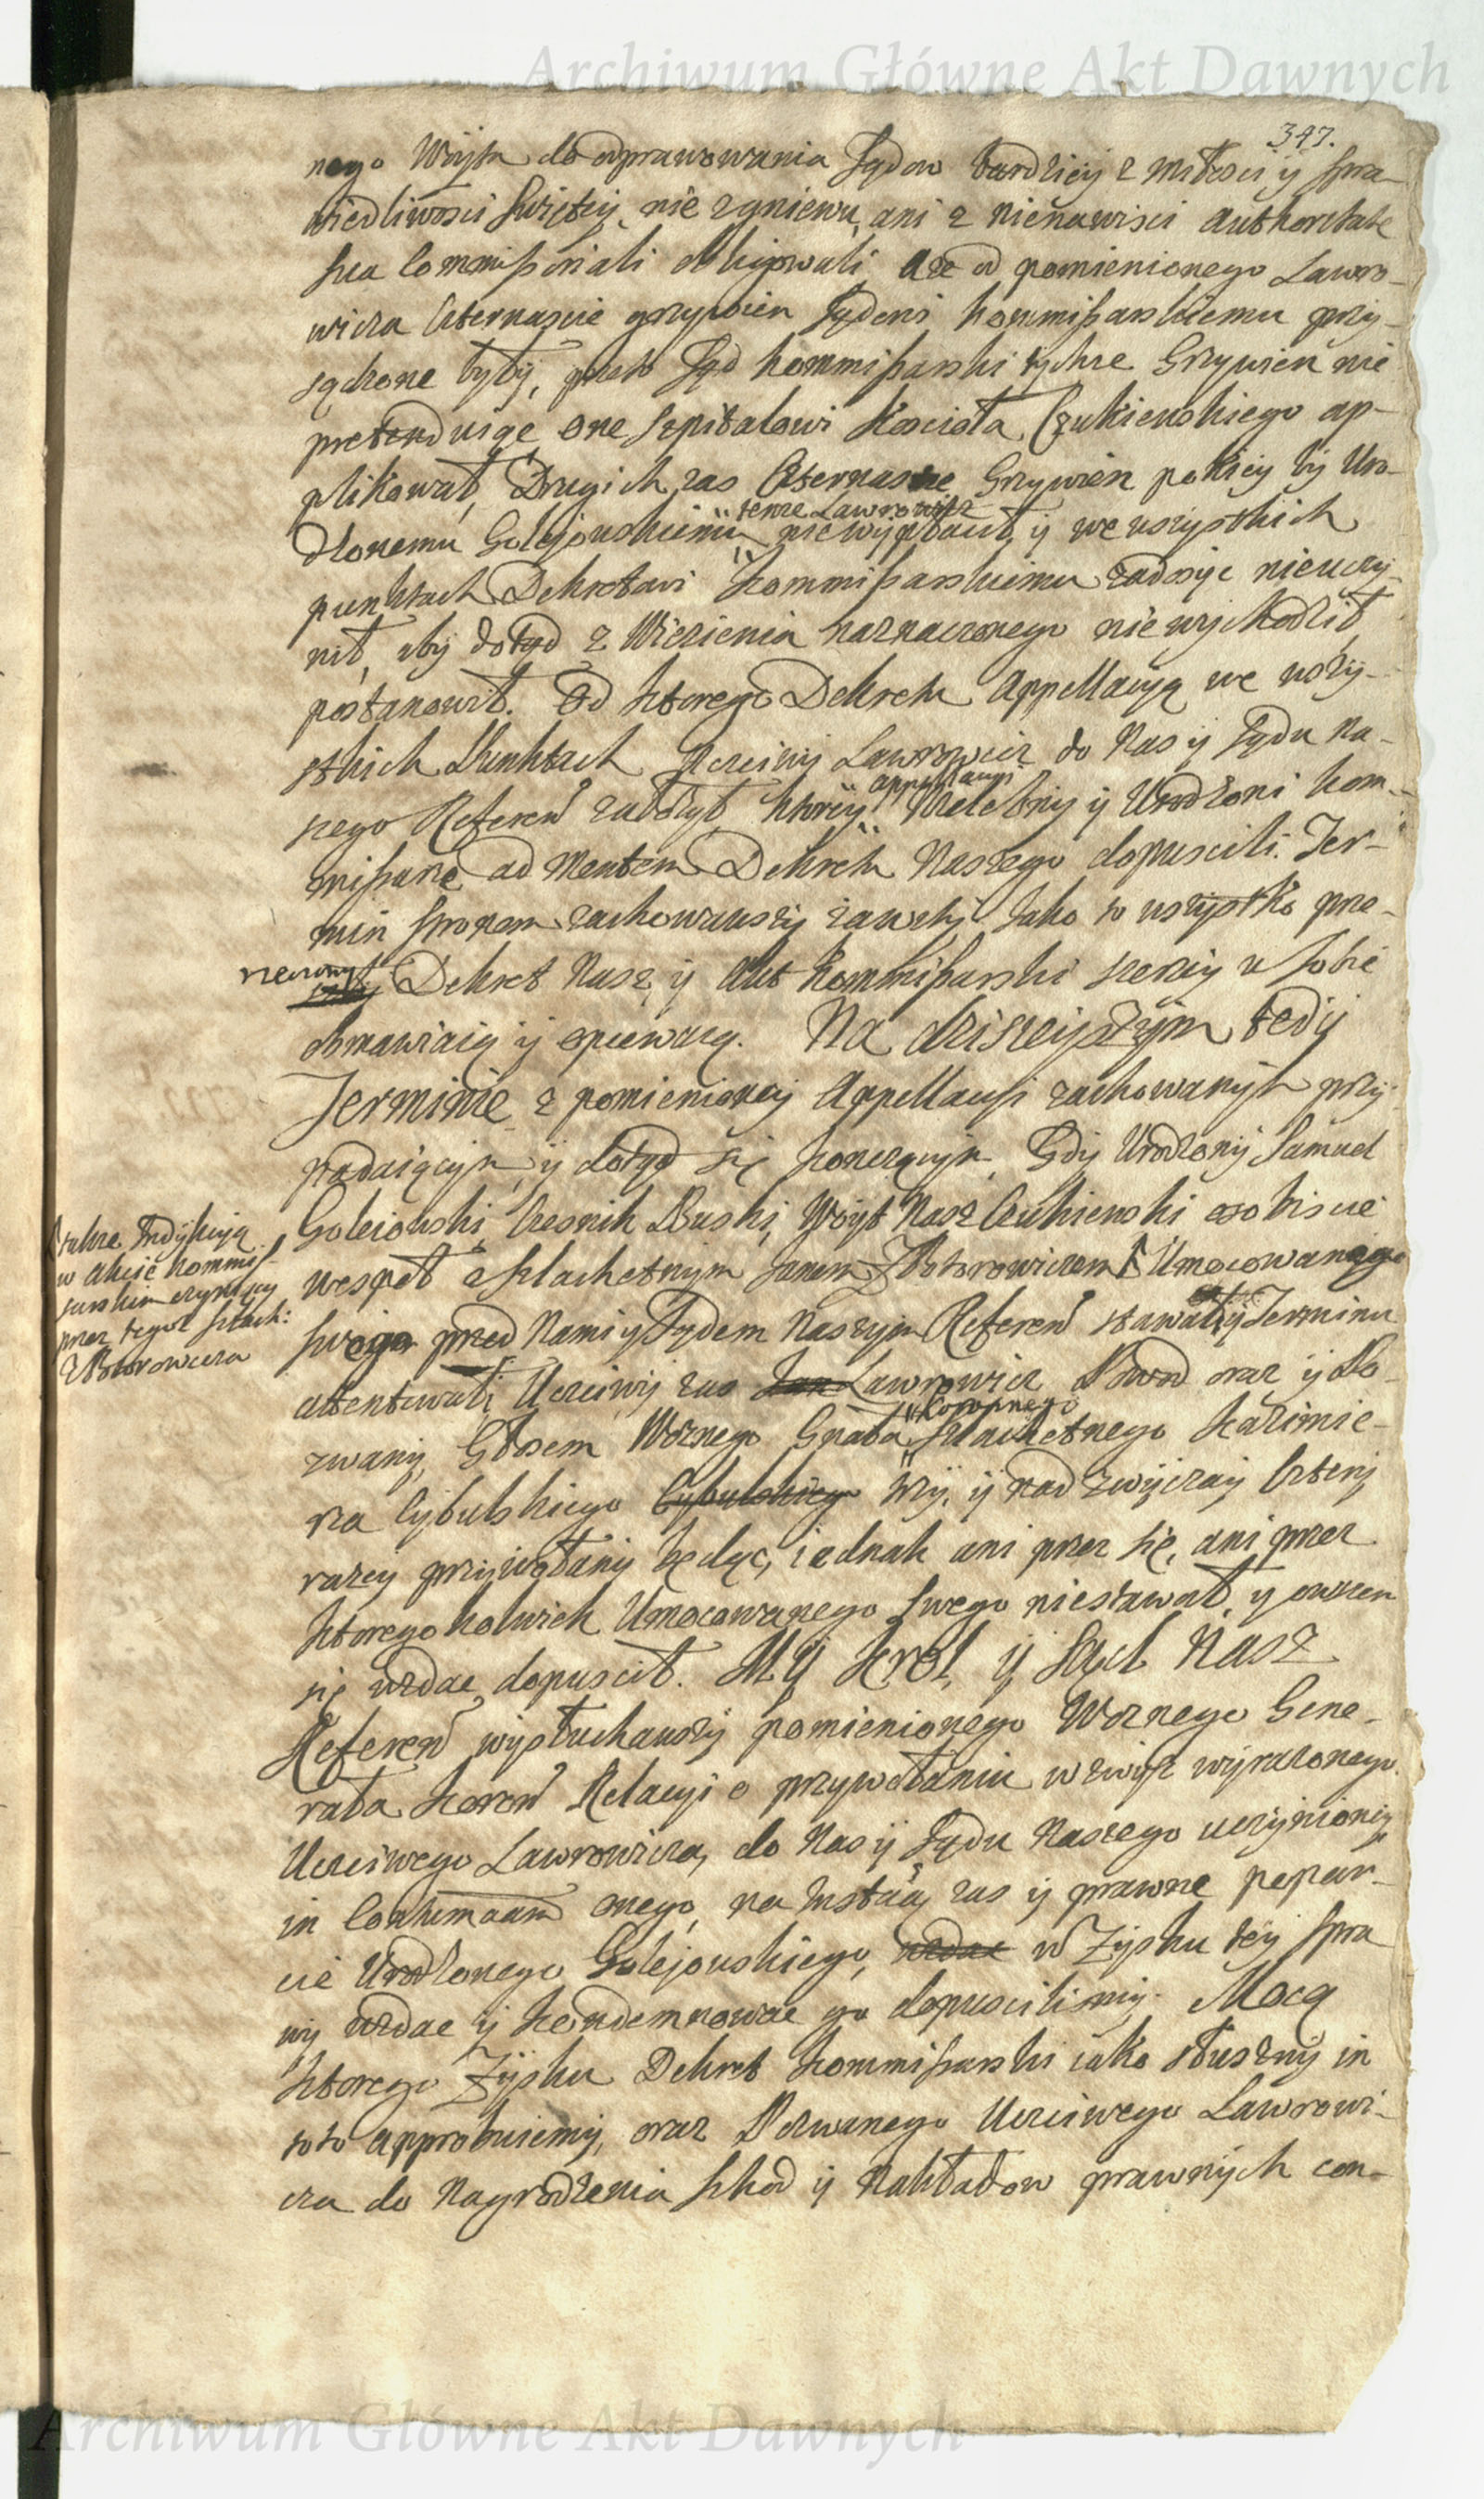 Archiwum Główne Akt Dawnych
347.
nego Wòyta do odprawowania Sądow bardziey z miłosci y spra-
wiedliwosci Swiętey, nie z gniewu, ani z nienawisci authoritate
sua Commissoriali obligowali. Aze od pomienionego Lawro-
wicza czternascie grzywien Sądowi Kommissarskiemu przy-
sądzone były, przeto Sąd Kommissarski tychze Grzywien nie
pretenduiąc one szpitalowi Koscioła Czukienskiego ap-
plikował, Drugich zas Czternascie Grzywien pokiey by Uro-
tenze Lawrowicz
dzonemu Golejowskiemu niewypłacił, y we wszystkich
punktach Dekretowi Kommissarskiemu zadosyc nieuczy-
nił, aby dotąd z Wiezienia naznaczonego niewychodził,
postanowił. Od ktorego Dekretu Appellacyą we wszy-
stkich Punktach Uczciwy Lawrowicz do Nas y Sądu Na-
appellacyi
szego Referen założył, ktorey Wielebny y Urodzeni Kom-
missarze ad mentem Dekretu Naszego dopuscili. Ter-
min stronom zachowawszy zawity. Jako to wszystko prze-
rzeczony Dekret Nasz, y Akt Kommissarski szerzey w sobie
obmawiaią y opiewaią. Na dzisieyszym tedy
Terminie z pomienioney Appellacyi zachowanym przy-
padaiącym, y dotąd się konczącym, Gdy Urodzony Samuel
Goleiowski, Czesnik Buski, Woyt Nasz Czukienski osobiscie
wespoł z Szlachetnym Janem Zbotorowiczem Umocowanego
swego przed Nami y Sądem Naszym Referen stawały Terminu
attentowali, Uczciwy zas Lawrowicz Powod oraz y Po-
Koronnego
zwany, Głosem Woznego Gnała Szlachetnego Kazimie-
rza Cybulskiego Cybulskiego trzy, y nad zwyczay czterÿ
razy przywołany będąc, iednak ani przez się, ani przez
ktoregokolwiek Umocowanego swego niestawał, y owszem
się wzdac dopuscił. My Krol, y Sąd Nasz
Referen wysłuchawszy pomienionego Woznego Gene-
rała Koron Relacyi o przywołaniu wzwyż wyrazonego
Uczciwego Lawrowicza, do Nas y Sądu Naszego uczynioney
in Contumaciam onego, na Instãcią zas y prawne popar-
cie Urodzonego Golejowskiego, wzdac w Zysku tey spra
wy wzdac y kondemnowac go dopuscilismy. Mocą
ktorego Zysku Dekret Kommissarski iako słuszny in
toto approbuiemy, oraz Pozwanego Uczciwego Lawrowi-
cza do Nagrodzenia szkod y Nakładow prawnych con-
takze Indykcyą
w Akcie Kommis-
sarskim czyniący
przez tegoz szlach:
Zbotorowicza
Archiwum Główne Akt Dawnych